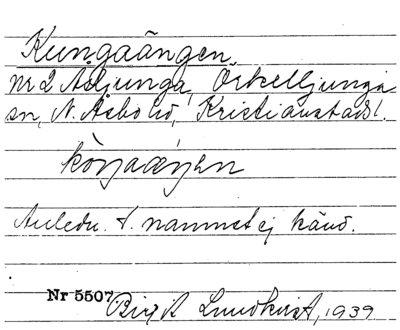 Kungaängen.
nr 2 Asljunga, Örkelljunga
sn, N. Åsbo hd, Kristianstads l.
Anledn. t. namnet ej känd.
Nr 5507. Birgit Lundkvist, 1939